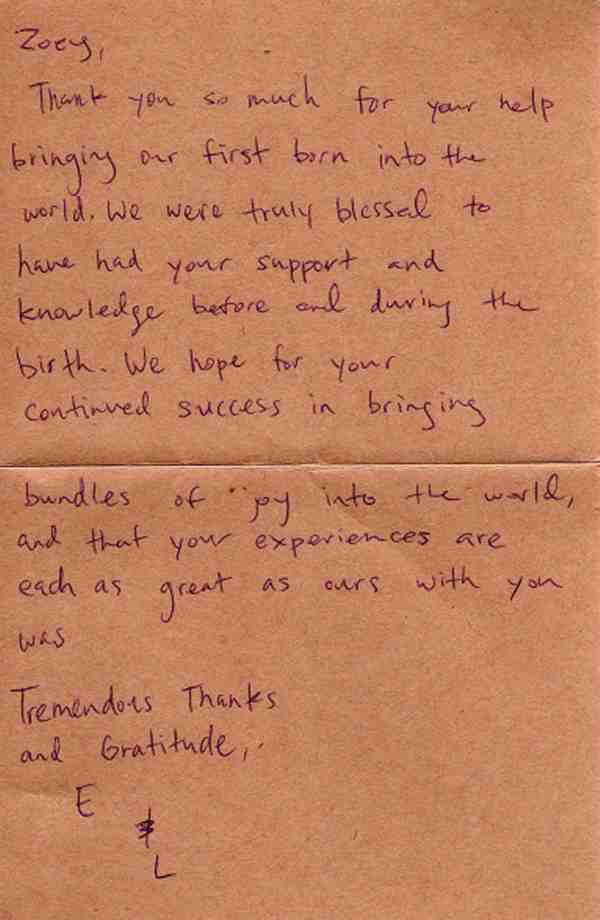 Zoey,
Thank you so much for your help
bringing our first born into the
world. We were truly blessed to
have had your support and
knowledge before and during the
birth. We hope for your
continued success in bringing
bundles of joy into the world,
and that your experiences are
each as great as ours with you
was
Tremendous Thanks
and Gratitude,
E
&
L